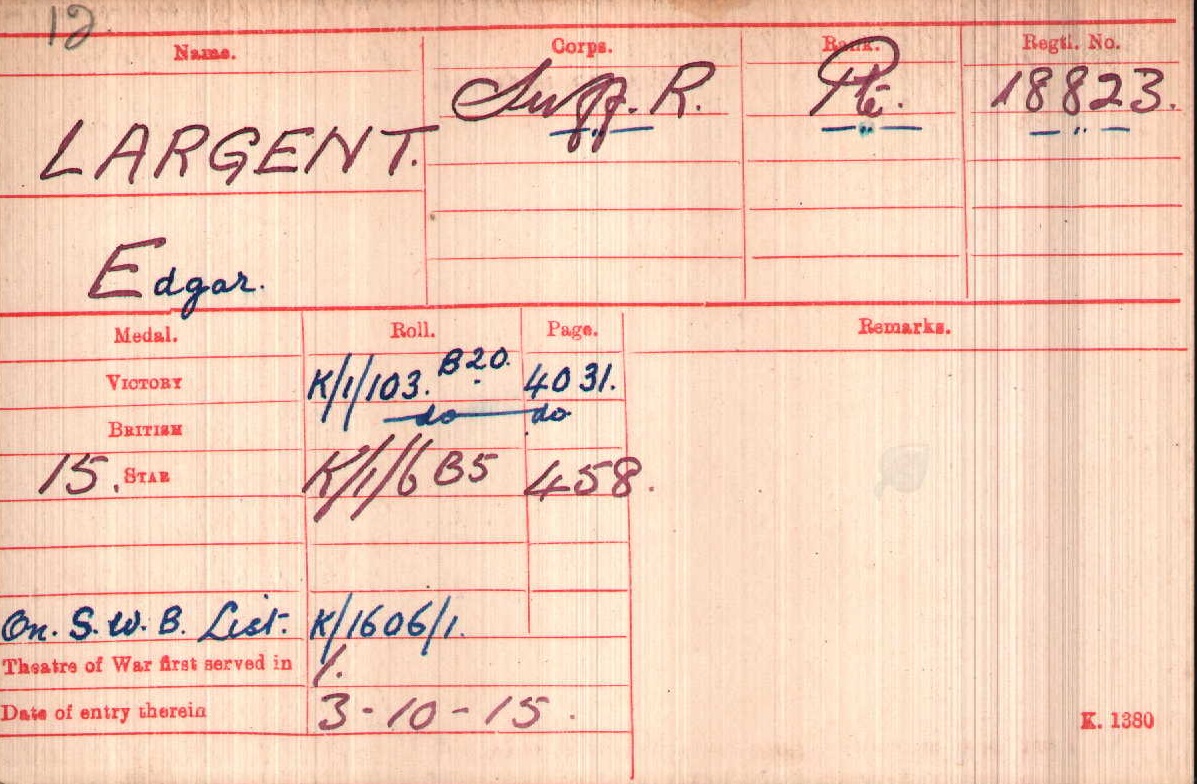 12
Name. Corps. Rank. Regtl. No.
LARGENT. Suff. R. Pte. 18823.
— " — — " — — " —
Edgar.
Medal. Roll. Page. Remarks.
VICTORY K/1/103. B20. 4031.
BRITISH do do
15 STAR K/1/6 B5 458.
On. S. W. B. List. K/1606/1.
Theatre of War first served in 1.
Date of entry therein 3-10-15.
K. 1380